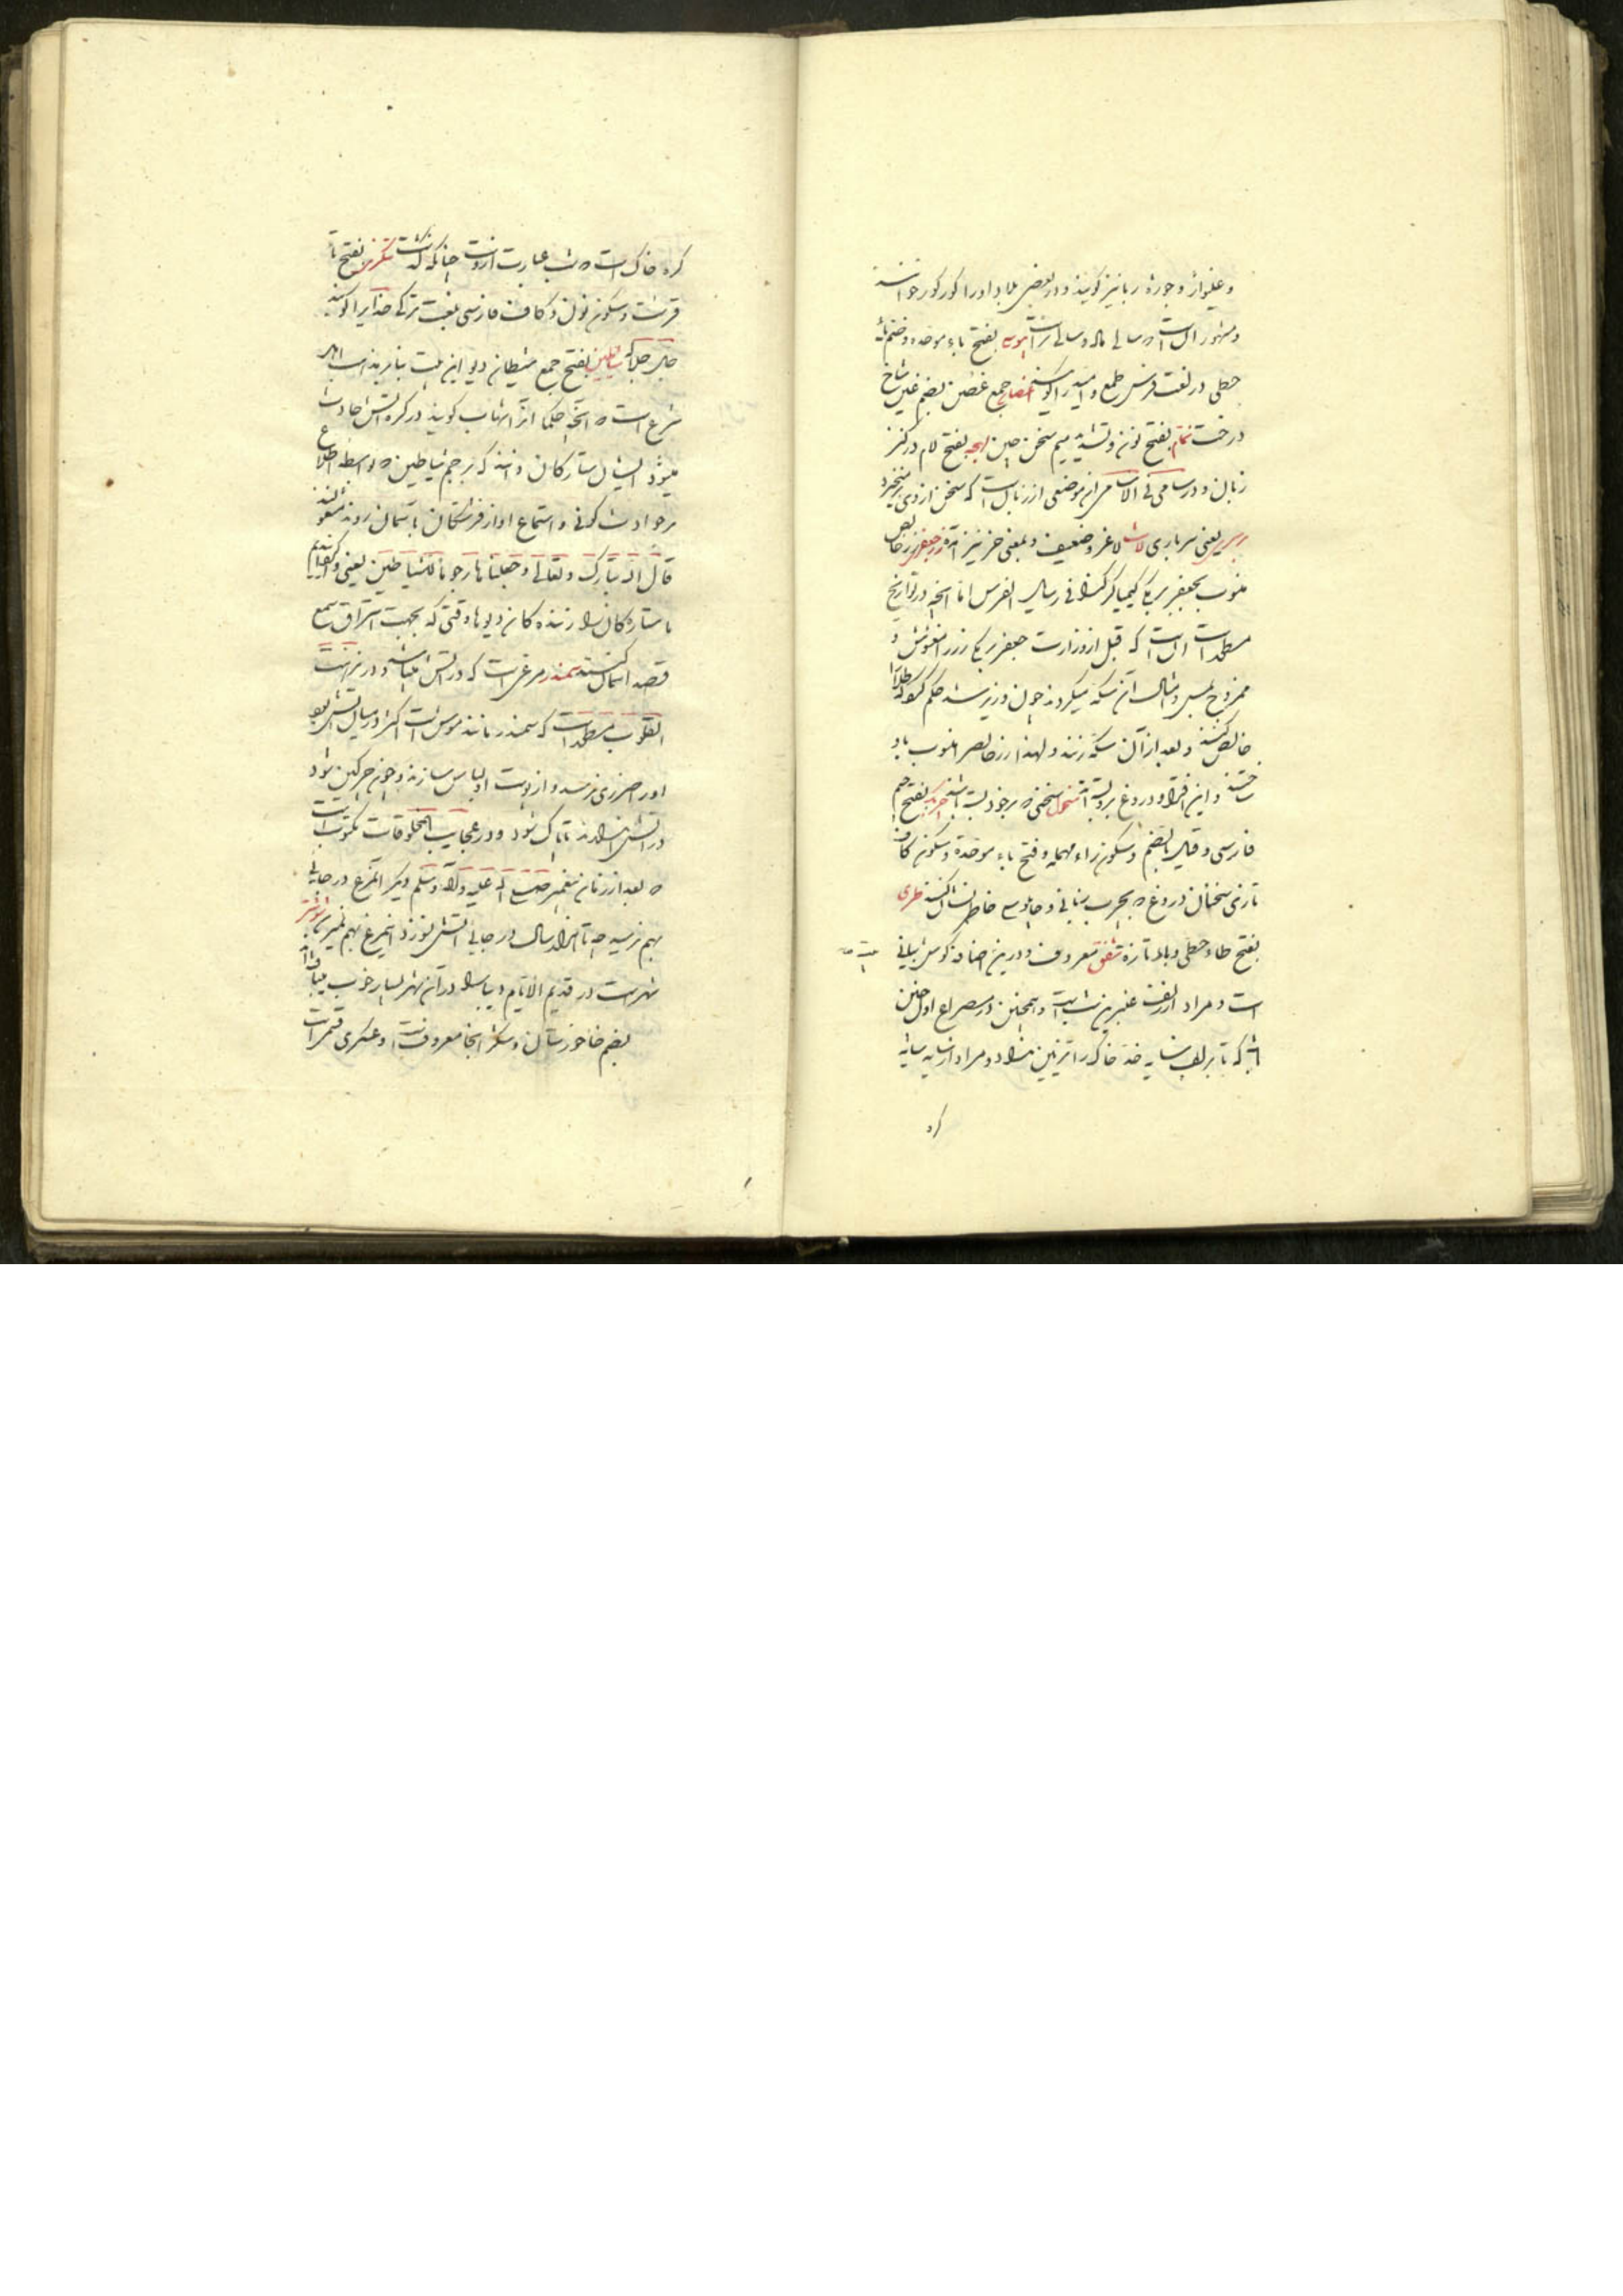 و غلیواژ و جوزه ربا نیز گویند و در بعضی بلاد او را کورکور خوانند
و مشهور آنست که سالی ماده و سالی نر است بیوس بفتح باء موحده و ضم یاء
حطی در لغت فرس طمع و امید را گویند اغصان جمع غصن بضم غین شاخ
درخت نمّام بفتح نون و تشدید میم سخن چین لهجه بفتح لام در کنز
زبان و در سامی فی الاسامی موضعی از زبانست که سخن از وی برمیخیزد
سربر یعنی سرباری لاشه لاغر و ضعیف و بمعنی خر نیز آمده زر جعفری زر خالص
منسوب بجعفر برمکی کیمیاگر کذا فی رسالة الفرس اما آنچه در تواریخ
مسطور است آنست که قبل از وزارت جعفر برمکی زر را مغشوش و
ممزوج بمس و مثال آن سکه میکردند چون وزیر شد حکم کرد که طلا را
خالص کنند و بعد از آن سکه زنند و لهذا زر خالص را منسوب باو
ساختند و این افترا و دروغ بر وی بسته اند منحول سخنی که بر خود بسته باشند چربک بفتح جیم
فارسی و قیل بالضم و سکون راء مهمله و فتح باء موحدة و سکون کاف
تازی سخنان دروغ که بچرب زبانی و چاپلوسی خاطر نشان کنند طری
بفتح طاء حطی و یاء تازه شفق معروف و درین اضافه گوش بیانی
است و مراد از لفت عنبرین شب است و همچنین در مصراع اول چنین
باشد که تا بر لب سایه خد خاک را تزیین میدهد و مراد از سایه سایهٔ
کره
کره خاک است که شب عبارت از آنست چنانکه گذشت تنگری بفتح تاء
قرشت و سکون نون و کاف فارسی بلغت ترکی خدایرا گویند
جل جلاله شیاطین بفتح جمع شیطان دیو این بیت بنا بر مذهب اهل
شرع است که آنچه حکما آنرا شهاب گویند در کره آتش حادث
میشود ایشان ستارگان دانند که برجم شیاطین که بواسطه اطلاع
بر حوادث کونی و استماع آواز فرشتگان بآسمان روند مشغولند
قال الله تبارک و تعالی و جعلناها رجوما للشیاطین یعنی و گردانیدیم
ما ستارگان را زننده گان دیوها وقتی که بجهت استراق سمع
قصد آسمان کنند سمندر مرغیست که در آتش میباشد و در نزهت
القلوب مسطور است که سمندر مانند موش است اکثر در میان آتش بود
او را ضرری نرسد و از پوست او لباس سازند و چون چرکین شود
در آتش اندازند تا پاک شود و در عجایب المخلوقات مکتوب است
که بعد از زمان پیغمبر صلی الله علیه و آله و سلم دیگر آن مرغ در جایی
بهم نرسید چه تا هزار سال در جایی آتش نسوزد این مرغ بهم نمیرسد شوشتر
شهریست در قدیم الایام دیبا را در آن شهر بسیار خوب میبافته اند
بضم خا خوزستان و سکر آنجا معروف است و عسکری قسمی است